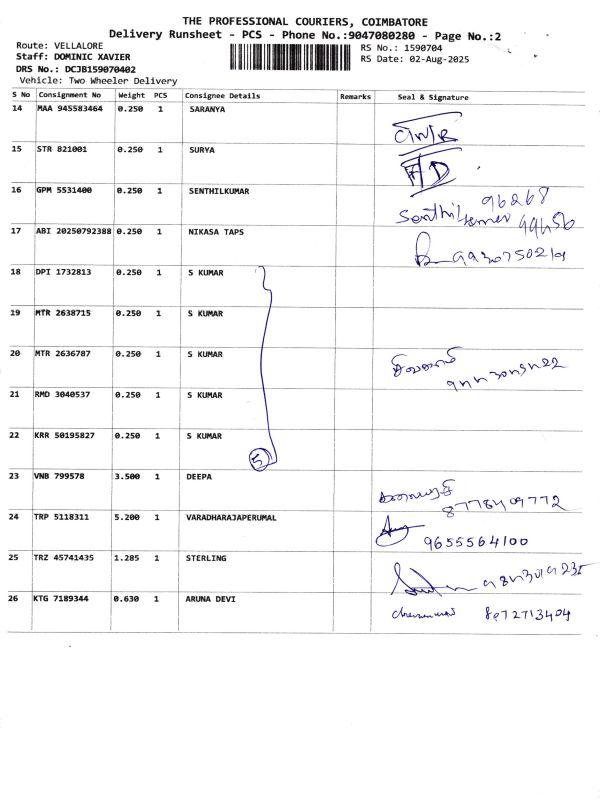 THE PROFESSIONAL COURIERS, COIMBATORE
Delivery Runsheet - PCS - Phone No.:9047080280 - Page No.:2
Route: VELLALORE
RS No.: 1590704
Staff: DOMINIC XAVIER
RS Date: 02-Aug-2025
DRS No.: DCJB159070402
Vehicle: Two Wheeler Delivery
S No Consignment No Weight PCS Consignee Details Remarks Seal & Signature
14 MAA 945583464 0.250 1 SARANYA
15 STR 821001 0.250 1 SURYA
16 GPM 5531400 0.250 1 SENTHILKUMAR 96268
Senthilkumar
17 ABI 20250792388 0.250 1 NIKASA TAPS
18 DPI 1732813 0.250 1 S KUMAR
19 MTR 2638715 0.250 1 S KUMAR
20 MTR 2636787 0.250 1 S KUMAR
21 RMD 3040537 0.250 1 S KUMAR
22 KRR 50195827 0.250 1 S KUMAR
5
23 VNB 799578 3.500 1 DEEPA
8778409772
24 TRP 5118311 5.200 1 VARADHARAJAPERUMAL
9655564100
25 TRZ 45741435 1.285 1 STERLING
26 KTG 7189344 0.630 1 ARUNA DEVI 8072713404